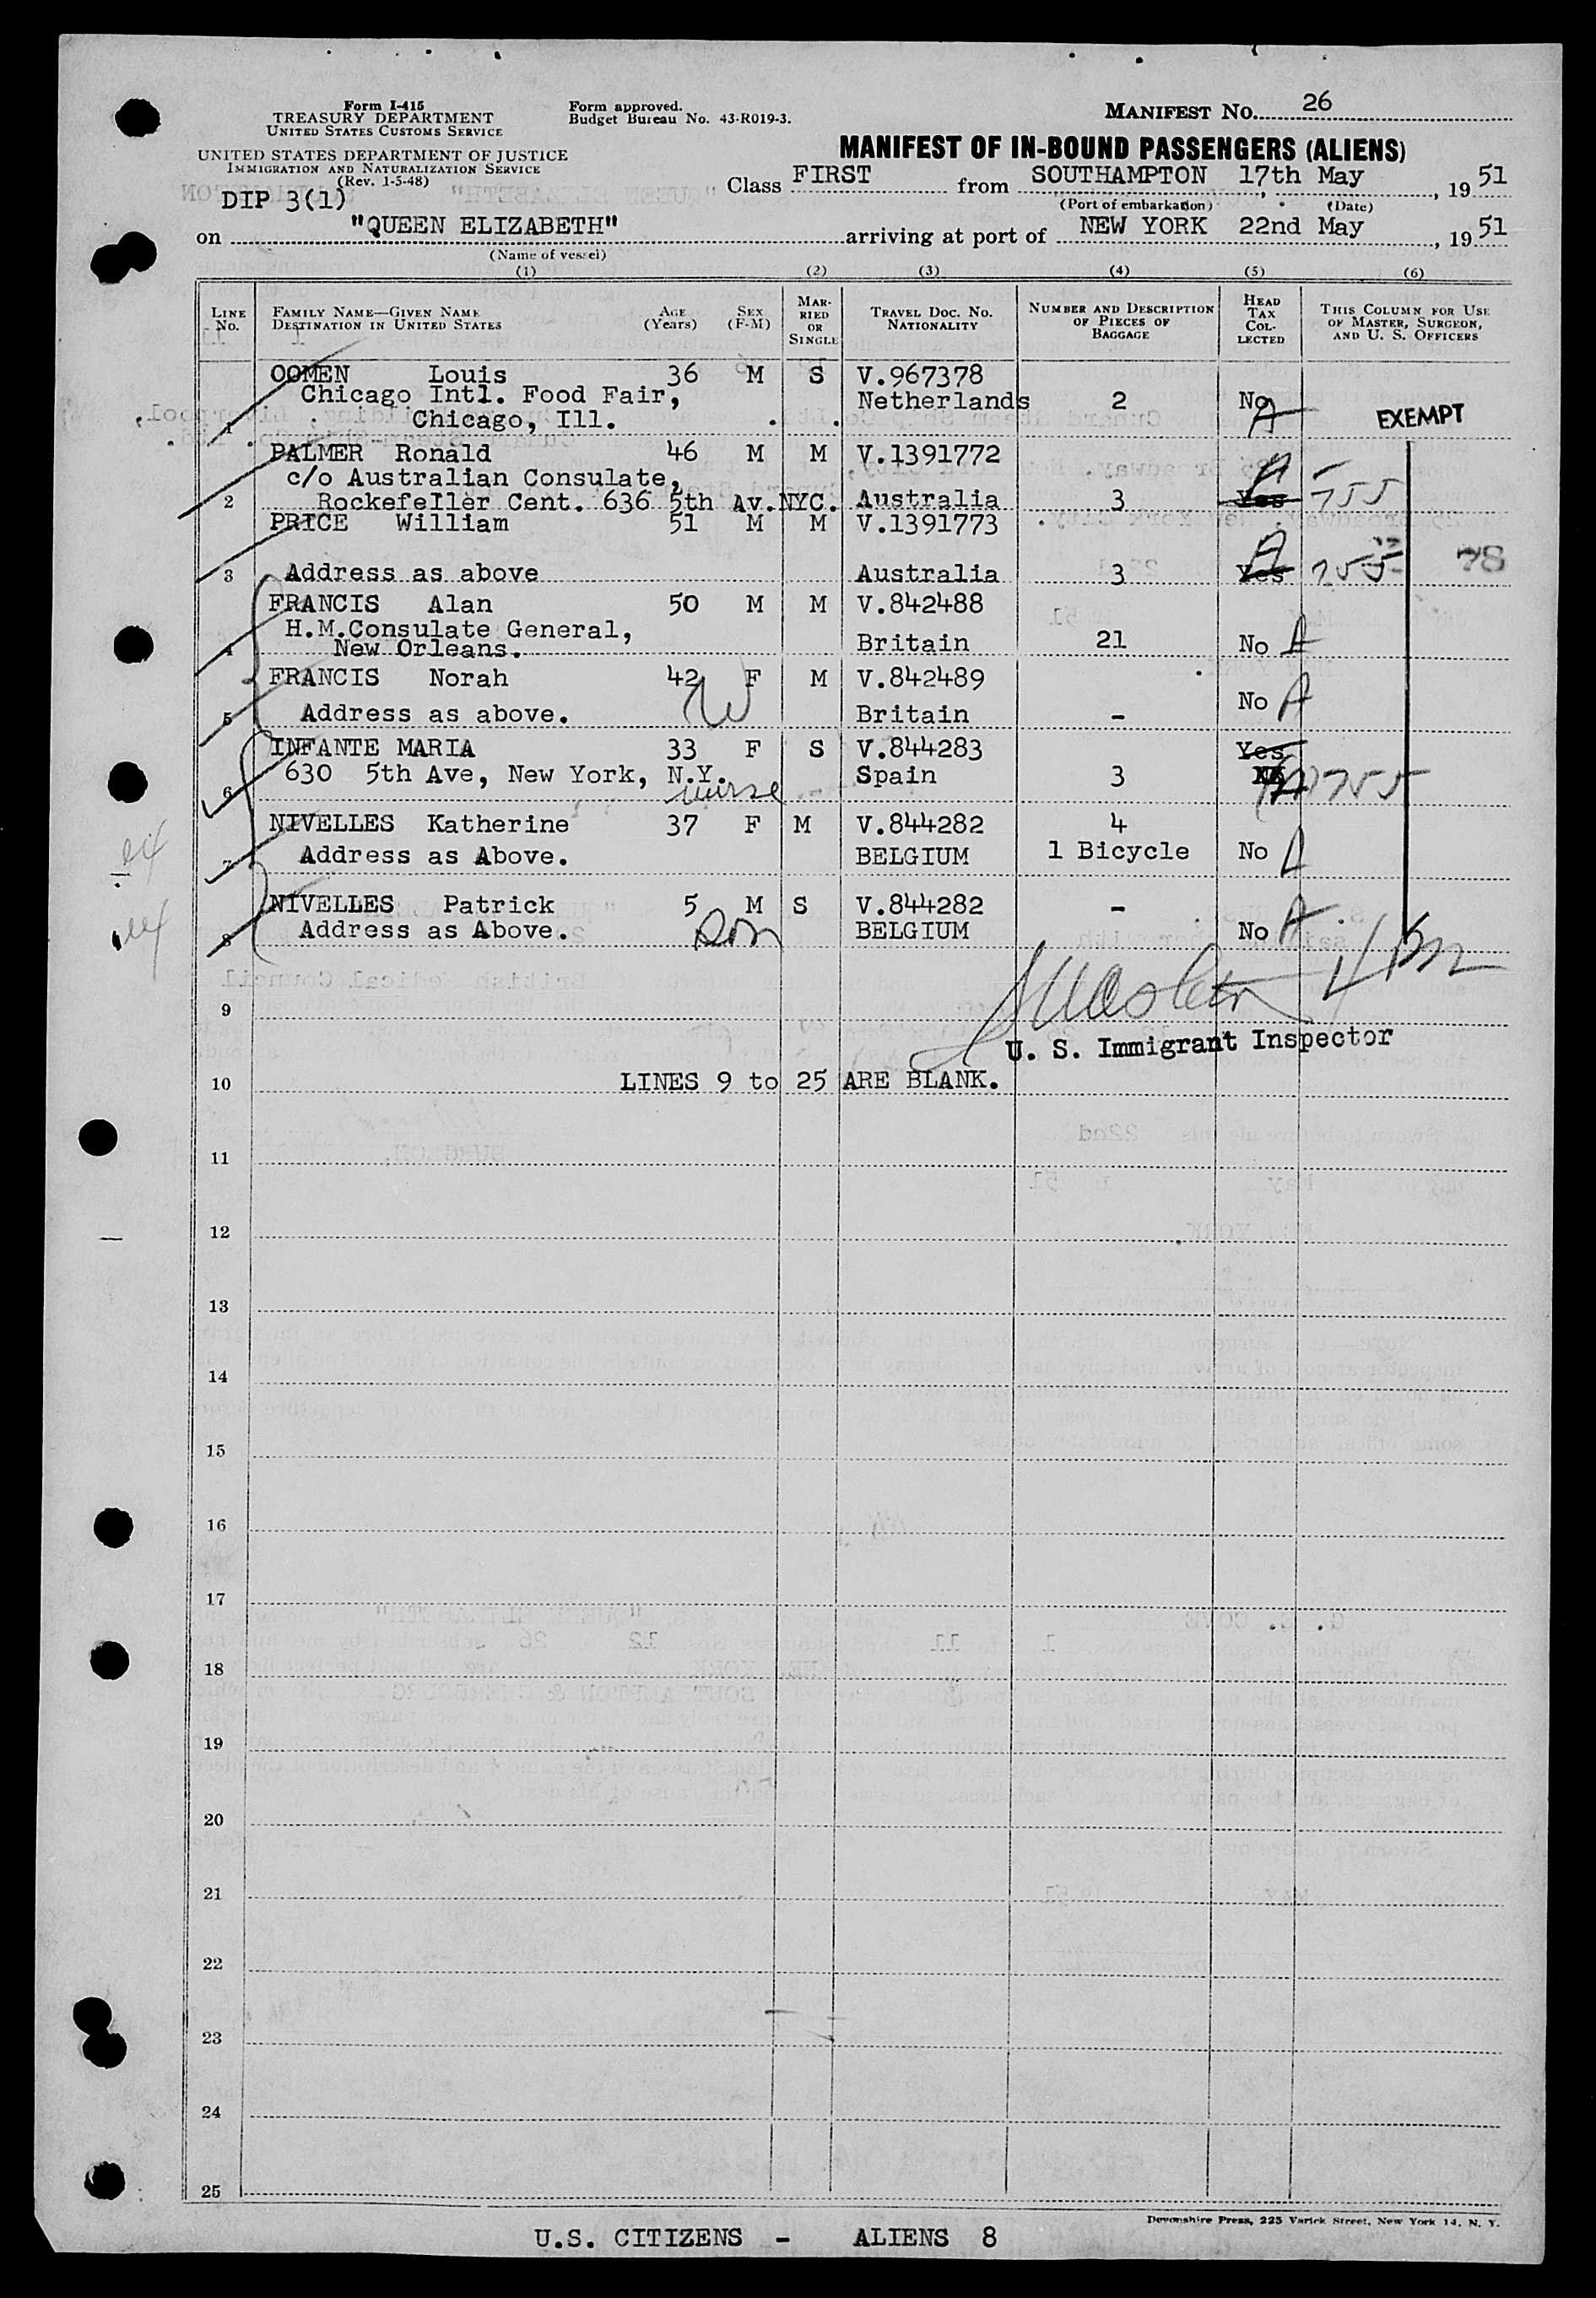 Form I-415
TREASURY DEPARTMENT
UNITED STATES CUSTOMS SERVICE
Form approved.
Budget Bureau No. 43-R019-3.
MANIFEST No. 26
UNITED STATES DEPARTMENT OF JUSTICE
IMMIGRATION AND NATURALIZATION SERVICE
(Rev. 1-5-48)
MANIFEST OF IN-BOUND PASSENGERS (ALIENS)
DIP 3(1)
Class FIRST from SOUTHAMPTON 17th May, 19 51
(Port of embarkation) (Date)
on "QUEEN ELIZABETH" arriving at port of NEW YORK 22nd May, 19 51
(Name of vessel)
(1) (2) (3) (4) (5) (6)
LINE No. FAMILY NAME—GIVEN NAME DESTINATION IN UNITED STATES AGE (Years) SEX (F-M) MARRIED OR SINGLE TRAVEL DOC. No. NATIONALITY NUMBER AND DESCRIPTION OF PIECES OF BAGGAGE HEAD TAX COLLECTED THIS COLUMN FOR USE OF MASTER, SURGEON, AND U. S. OFFICERS
OOMEN Louis 36 M S V.967378
Chicago Intl. Food Fair, Netherlands 2 No
1 Chicago, Ill. A EXEMPT
PALMER Ronald 46 M M V.1391772
c/o Australian Consulate, A
2 Rockefeller Cent. 636 5th Av.NYC. Australia 3 Yes 755
PRICE William 51 M M V.1391773
A
3 Address as above Australia 3 Yes 755 78
FRANCIS Alan 50 M M V.842488
H.M.Consulate General, Britain 21 No A
4 New Orleans.
FRANCIS Norah 42 F M V.842489
W No A
5 Address as above. Britain -
INFANTE MARIA 33 F S V.844283 Yes
630 5th Ave, New York, N.Y. Spain 3 755
6 nurse
NIVELLES Katherine 37 F M V.844282 4
7 Address as Above. BELGIUM 1 Bicycle No A
NIVELLES Patrick 5 M S V.844282 -
8 Address as Above. son BELGIUM No A
9
U. S. Immigrant Inspector
10 LINES 9 to 25 ARE BLANK.
11
12
13
14
15
16
17
18
19
20
21
22
23
24
25
Devonshire Press, 225 Varick Street, New York 14, N. Y.
U.S. CITIZENS - ALIENS 8